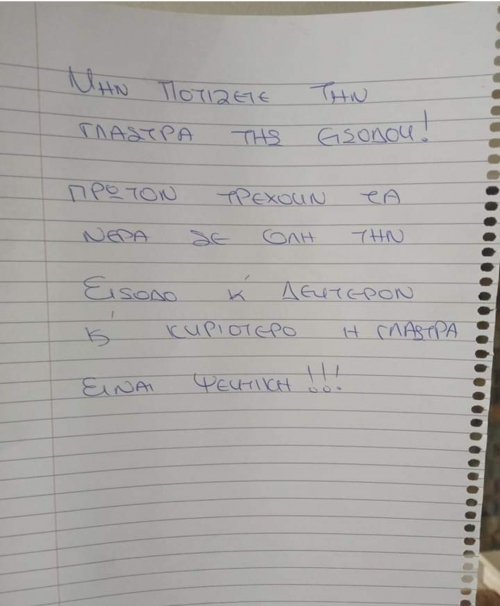 Μην ποτιζετε την
γλαστρα της εισοδου!
πρωτον τρεχουν τα
νερα σε ολη την
Εισοδο κ' Δευτερον
κ' κυριοτερο η γλαστρα
ειναι ψευτικη!!!